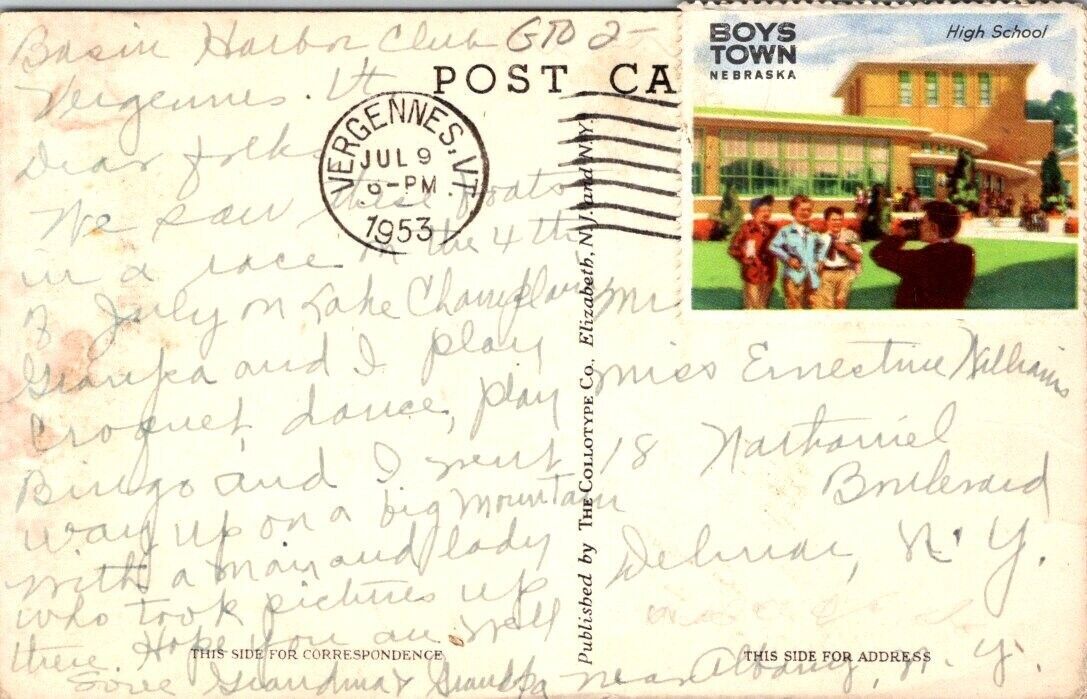 Basin Harbor Club
Vergennes. Vt
Dear folks
We saw these boats
in a race on the 4th
of July on Lake Champlain
Grampa and I play
Croquet, dance, play
Bingo and I went
way up on a big mountain
with a man and lady
who took pictures up
there. Hope you are well
Love Grandma & Grandpa
POST CA
VERGENNES, VT.
JUL 9
6-PM
1953
THIS SIDE FOR CORRESPONDENCE
Published by THE COLLOTYPE CO., Elizabeth, N.J. and N.Y.
BOYS
TOWN
NEBRASKA
High School
Miss Ernestine Williams
18 Nathaniel
Boulevard
Delmar, N.Y.
near Albany, N.Y.
THIS SIDE FOR ADDRESS